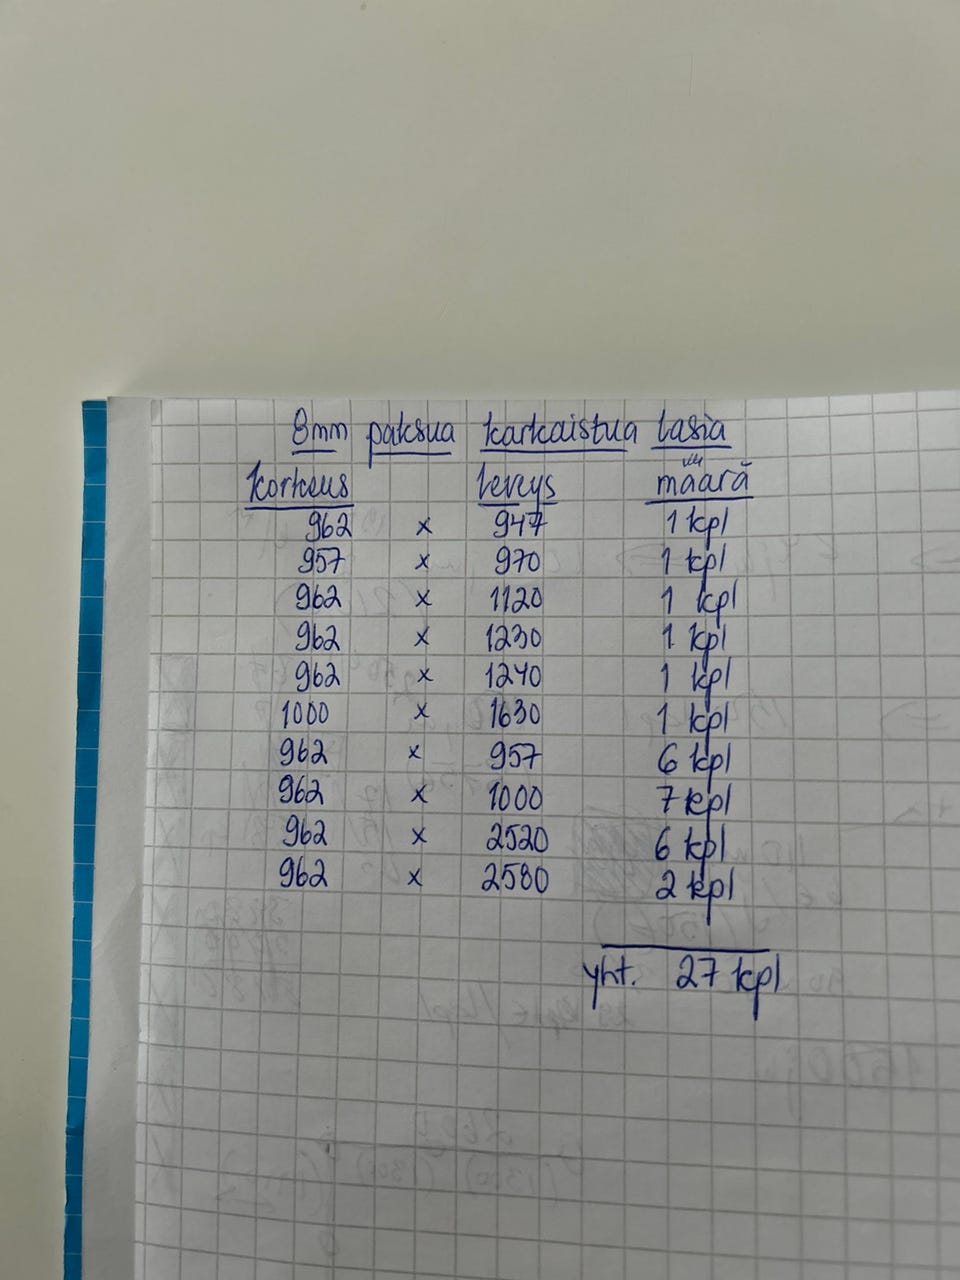 8mm paksua karkaistua lasia
korkeus leveys määrä
962 x 947 1 kpl
957 x 970 1 kpl
962 x 1120 1 kpl
962 x 1230 1 kpl
962 x 1240 1 kpl
1000 x 1630 1 kpl
962 x 957 6 kpl
962 x 1000 7 kpl
962 x 2520 6 kpl
962 x 2580 2 kpl
yht. 27 kpl